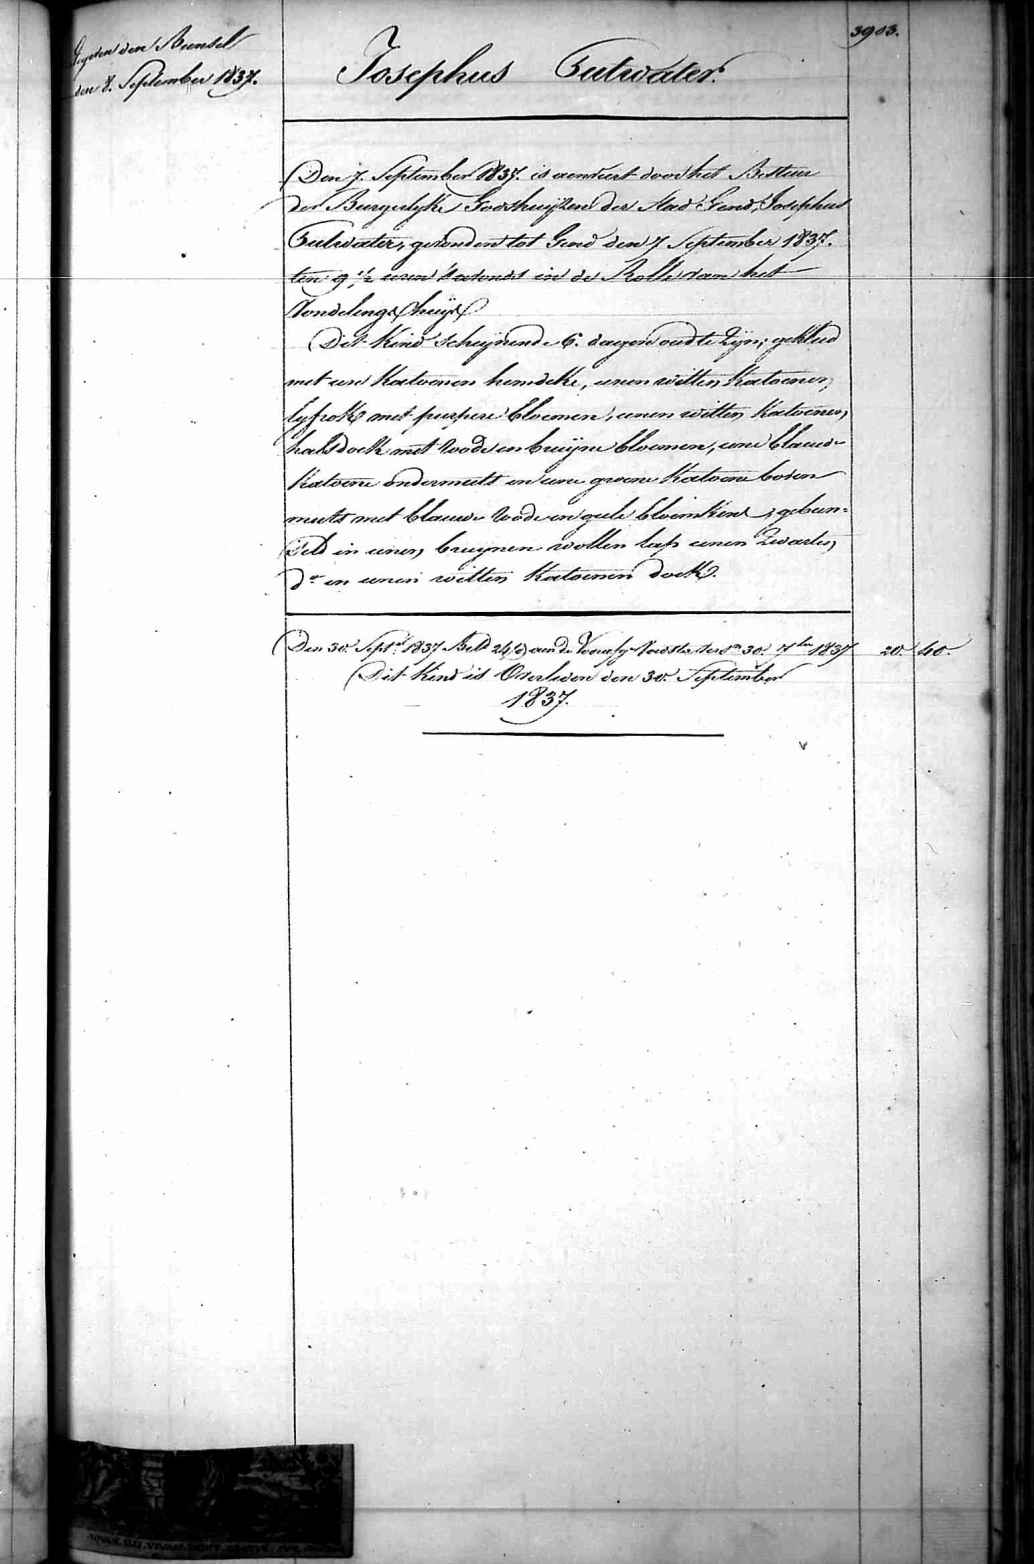 3903.
den Bundel
den 8. September 1837.
Josephus Eutwater.
Den 7. September 1837. is aenveert door het Bestuer
der Burgerlyke Godshuyzen der stad Gend, Josephus
Eutwater, gevonden tot Gend den 7 September 1837.
ten 9 1/2 uren 's avonds in de Rolle van het
Vondelingshuys
Dit Kind scheynende 6. dagen oud te zyn; gekleed
met een Katoenen hemdeke, eenen witten Katoenen,
lyfrok met purpere bloemen, eenen witten Katoenen,
halsdoek met roode en bruyne bloemen, eene blauwe
Katoene ondermuts en eene groene Katoene boven
muts met blauwe roode en geele bloemkens, gebun-
deld in eenen bruynen wollen lap eenen Zwarten,
do en eenen witten Katoenen doek.
Den 30. Sept 1837 Beld aan de 30. 7ber 1837 20. 40.
Dit Kind is Overleden den 30. September
1837.